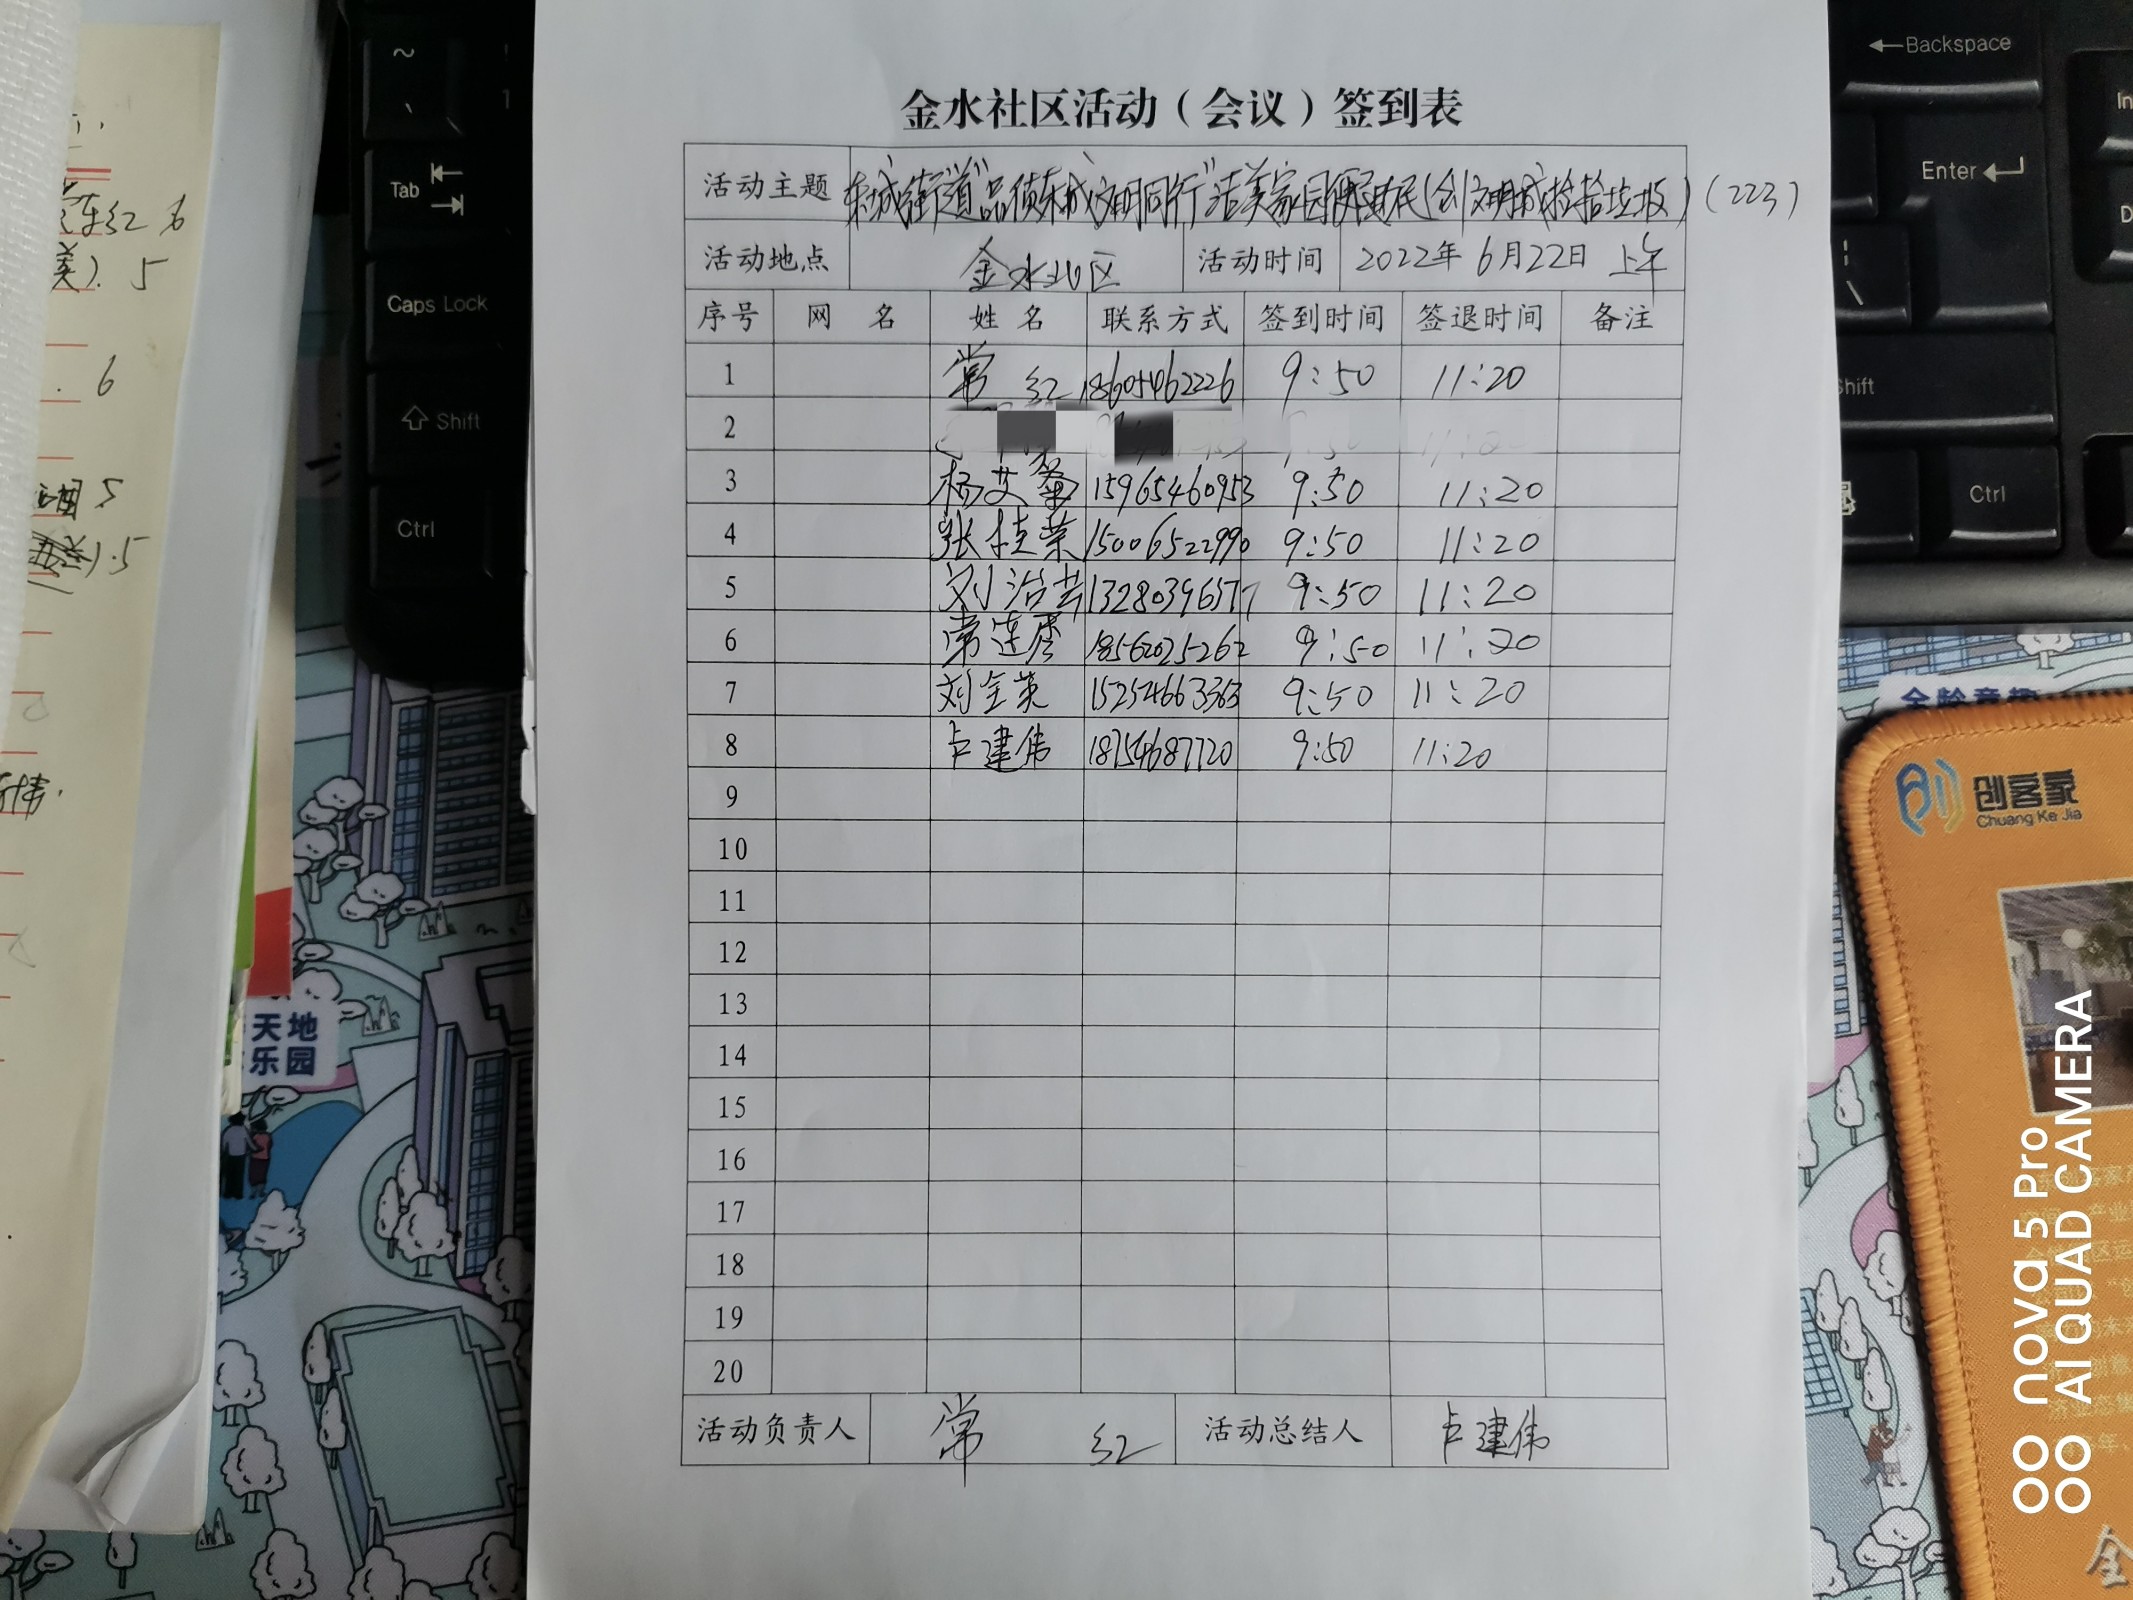 金水社区活动（会议）签到表
活动主题 东城街道"品质东城文明同行"洁美家园便民(创文明城捡拾垃圾)(223)
活动地点 金水社区 活动时间 2022年6月22日 上午
序号 网 名 姓 名 联系方式 签到时间 签退时间 备注
1 常 红 18605462226 9:50 11:20
2
3 杨艾馨 15965460953 9:50 11:20
4 张桂荣 15006522990 9:50 11:20
5 刘治芸 13280396577 9:50 11:20
6 常连秀 18562025262 9:50 11:20
7 刘全英 15254663363 9:50 11:20
8 卢建伟 18754687720 9:50 11:20
9
10
11
12
13
14
15
16
17
18
19
20
活动负责人 常 红 活动总结人 卢建伟
~
Tab
Caps Lock
Shift
Ctrl
Backspace
Enter
Shift
Ctrl
红 6
5
6
5
5
天地
乐园
创客家
Chuang Ke Jia
nova 5 Pro
AI QUAD CAMERA